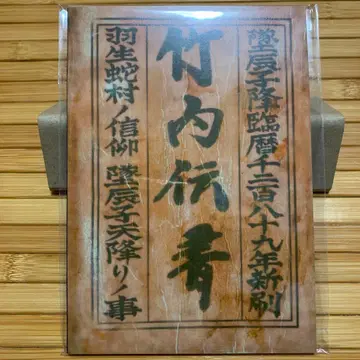 墜辰子降臨暦千二百八十九年新刷
竹内伝書
羽生蛇村ノ信仰 墜辰子天降リノ事